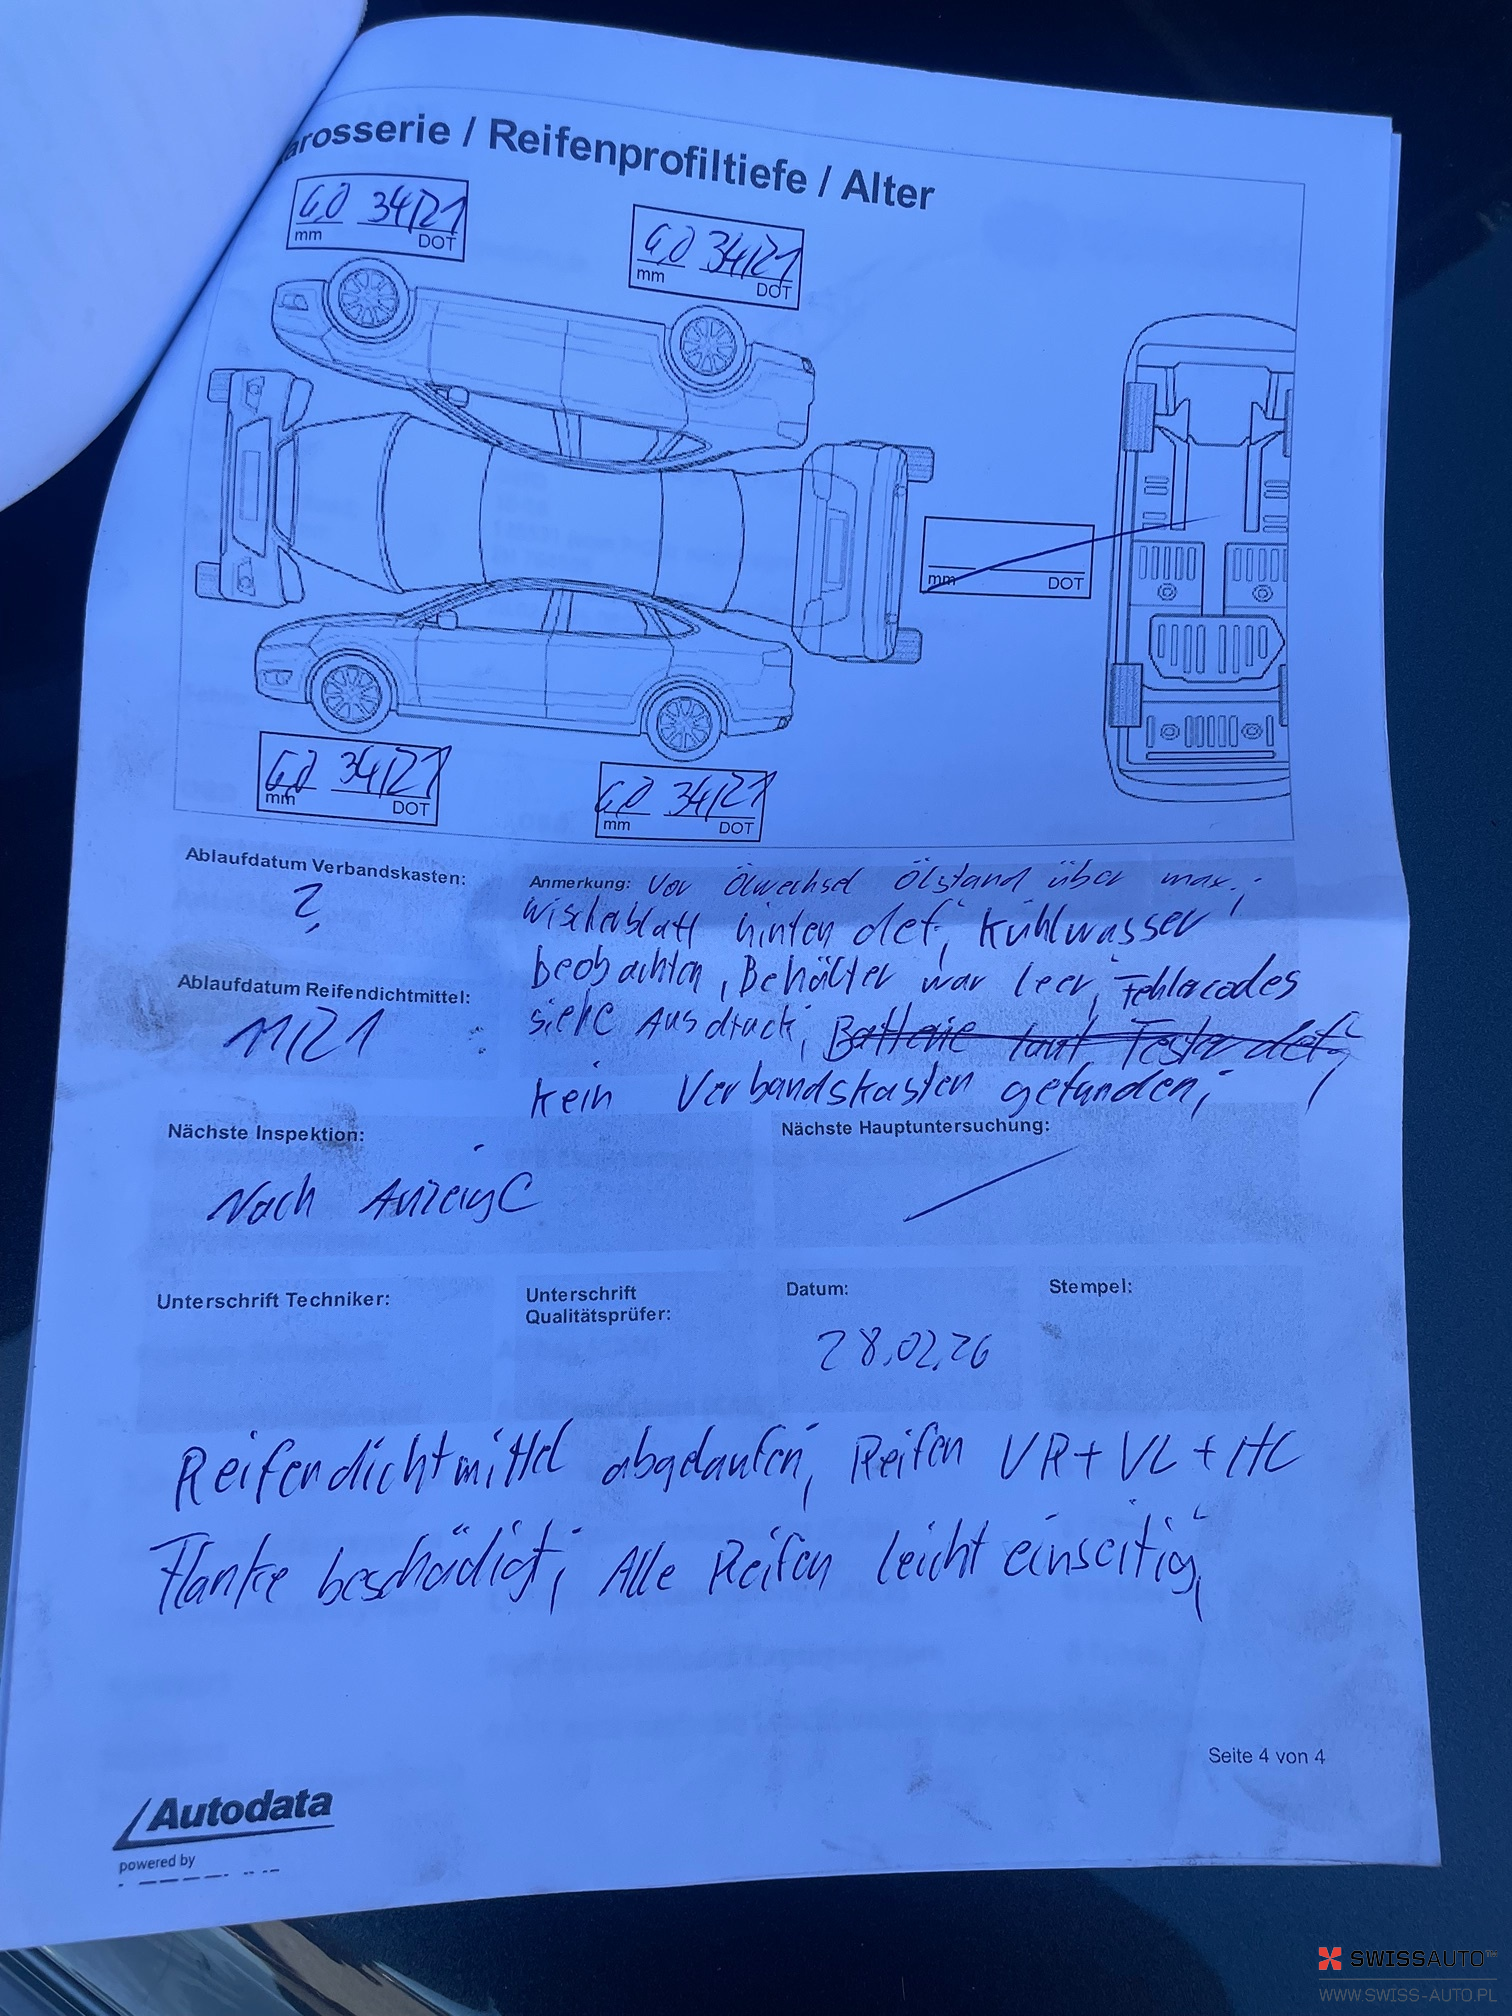 arosserie / Reifenprofiltiefe / Alter
6,0 34/21
mm DOT
6,0 34/21
mm DOT
mm DOT
6,0 34/21
mm DOT
6,0 34/21
mm DOT
Ablaufdatum Verbandskasten:
?
Ablaufdatum Reifendichtmittel:
11/21
Anmerkung: Vor Ölwechsel Ölstand über max.;
Wischerblatt hinten def; Kühlwasser
beobachten, Behälter war leer; Fehlercodes
siehe Ausdruck; Batterie laut Tester def;
kein Verbandskasten gefunden;
Nächste Inspektion:
Nach Anzeige
Nächste Hauptuntersuchung:
Unterschrift Techniker:
Unterschrift
Qualitätsprüfer:
Datum:
28.02.26
Stempel:
Reifendichtmittel abgelaufen; Reifen VR + VL + HL
Flanke beschädigt; Alle Reifen leicht einseitig;
Seite 4 von 4
Autodata
powered by
SWISSAUTO
WWW.SWISS-AUTO.PL